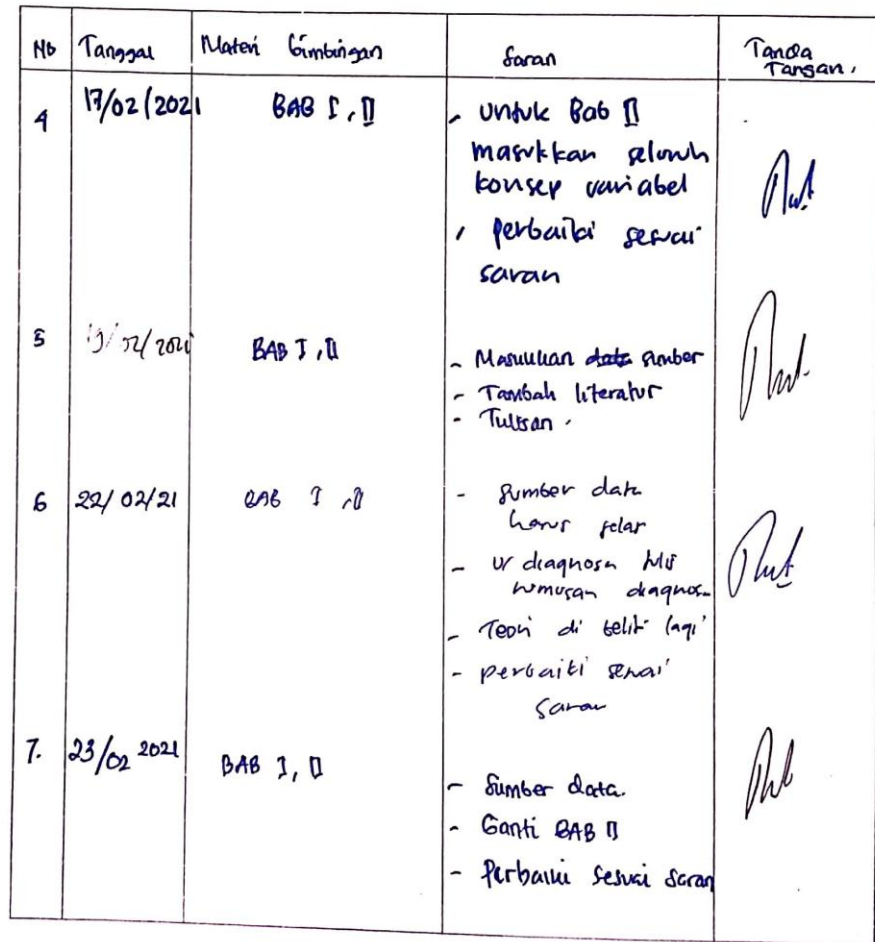 No Tanggal Materi Bimbingan Saran Tanda Tangan.
4 17/02/2021 BAB I, II - Untuk Bab II
masukkan seluruh
konsep variabel
- perbaiki sesuai
saran
5 19/02/2021 BAB I, II - Masukkan data sumber
- Tambah literatur
- Tulisan.
6 22/02/21 BAB I, II - Sumber data
harus jelas
- ur diagnosa
rumusan diagnosa
- Teori di teliti lagi
- perbaiki sesuai
saran
7. 23/02 2021 BAB I, II - Sumber data.
- Ganti BAB II
- Perbaiki sesuai saran